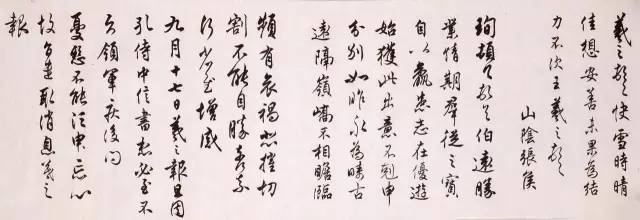 羲之頓首快雪時晴
佳想安善未果為結
力不次王羲之頓首
山陰張侯
珣頓首頓首伯遠勝
業情期羣從之寶
自以羸患志在優遊
始獲此出意不剋申
分別如昨永為疇古
遠隔嶺嶠不相瞻臨
頻有哀禍悲摧切
割不能自勝奈何奈
何省慰增感
九月十七日羲之報且因
孔侍中信書想必至不
知領軍疾後問
憂懸不能須臾忘心
故旨遣取消息羲之
報